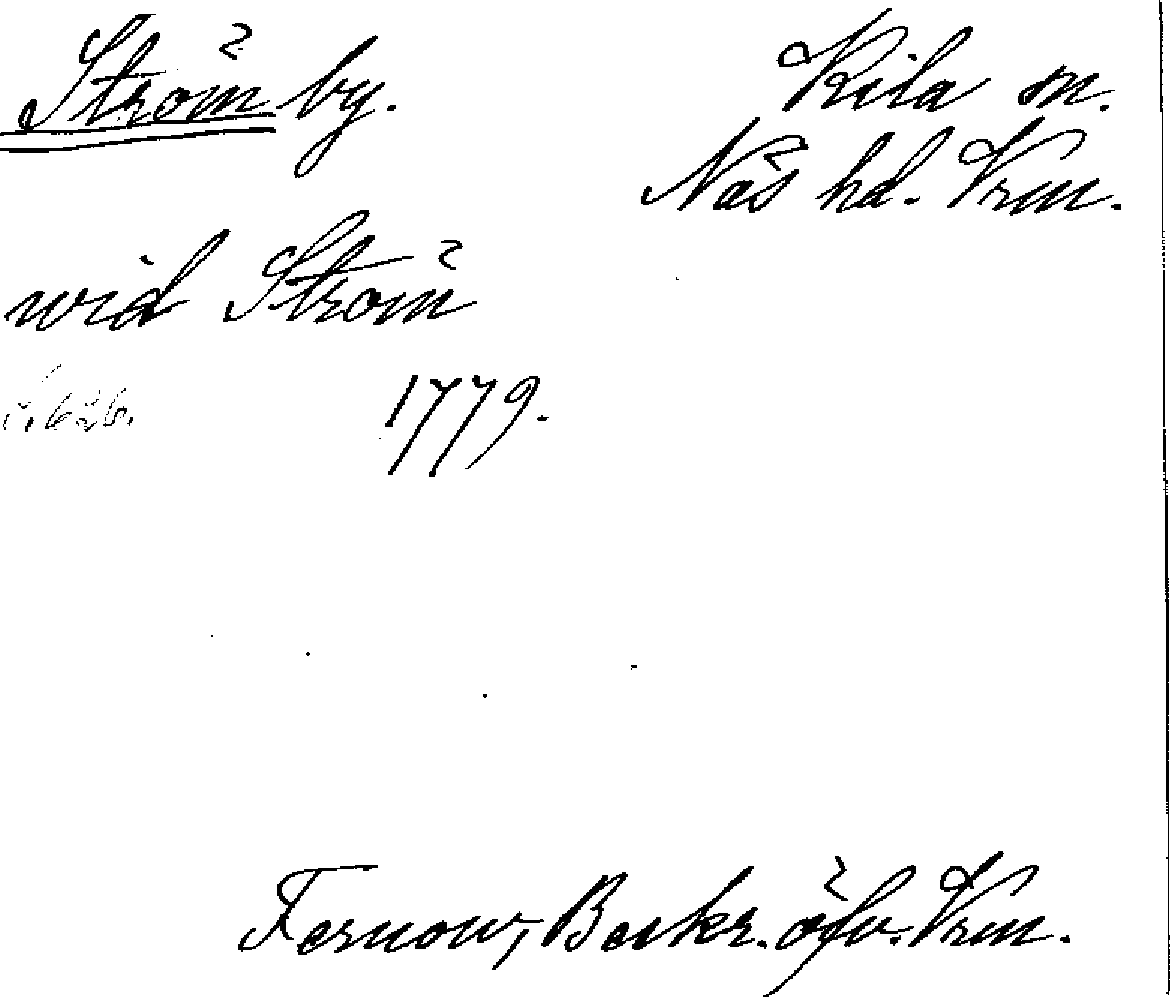 Ström by.
Kila sn.
Näs hd. Vrm.
wid Ström
s. 626.
1779.
Fernow, Beskr. öfv. Vrm.